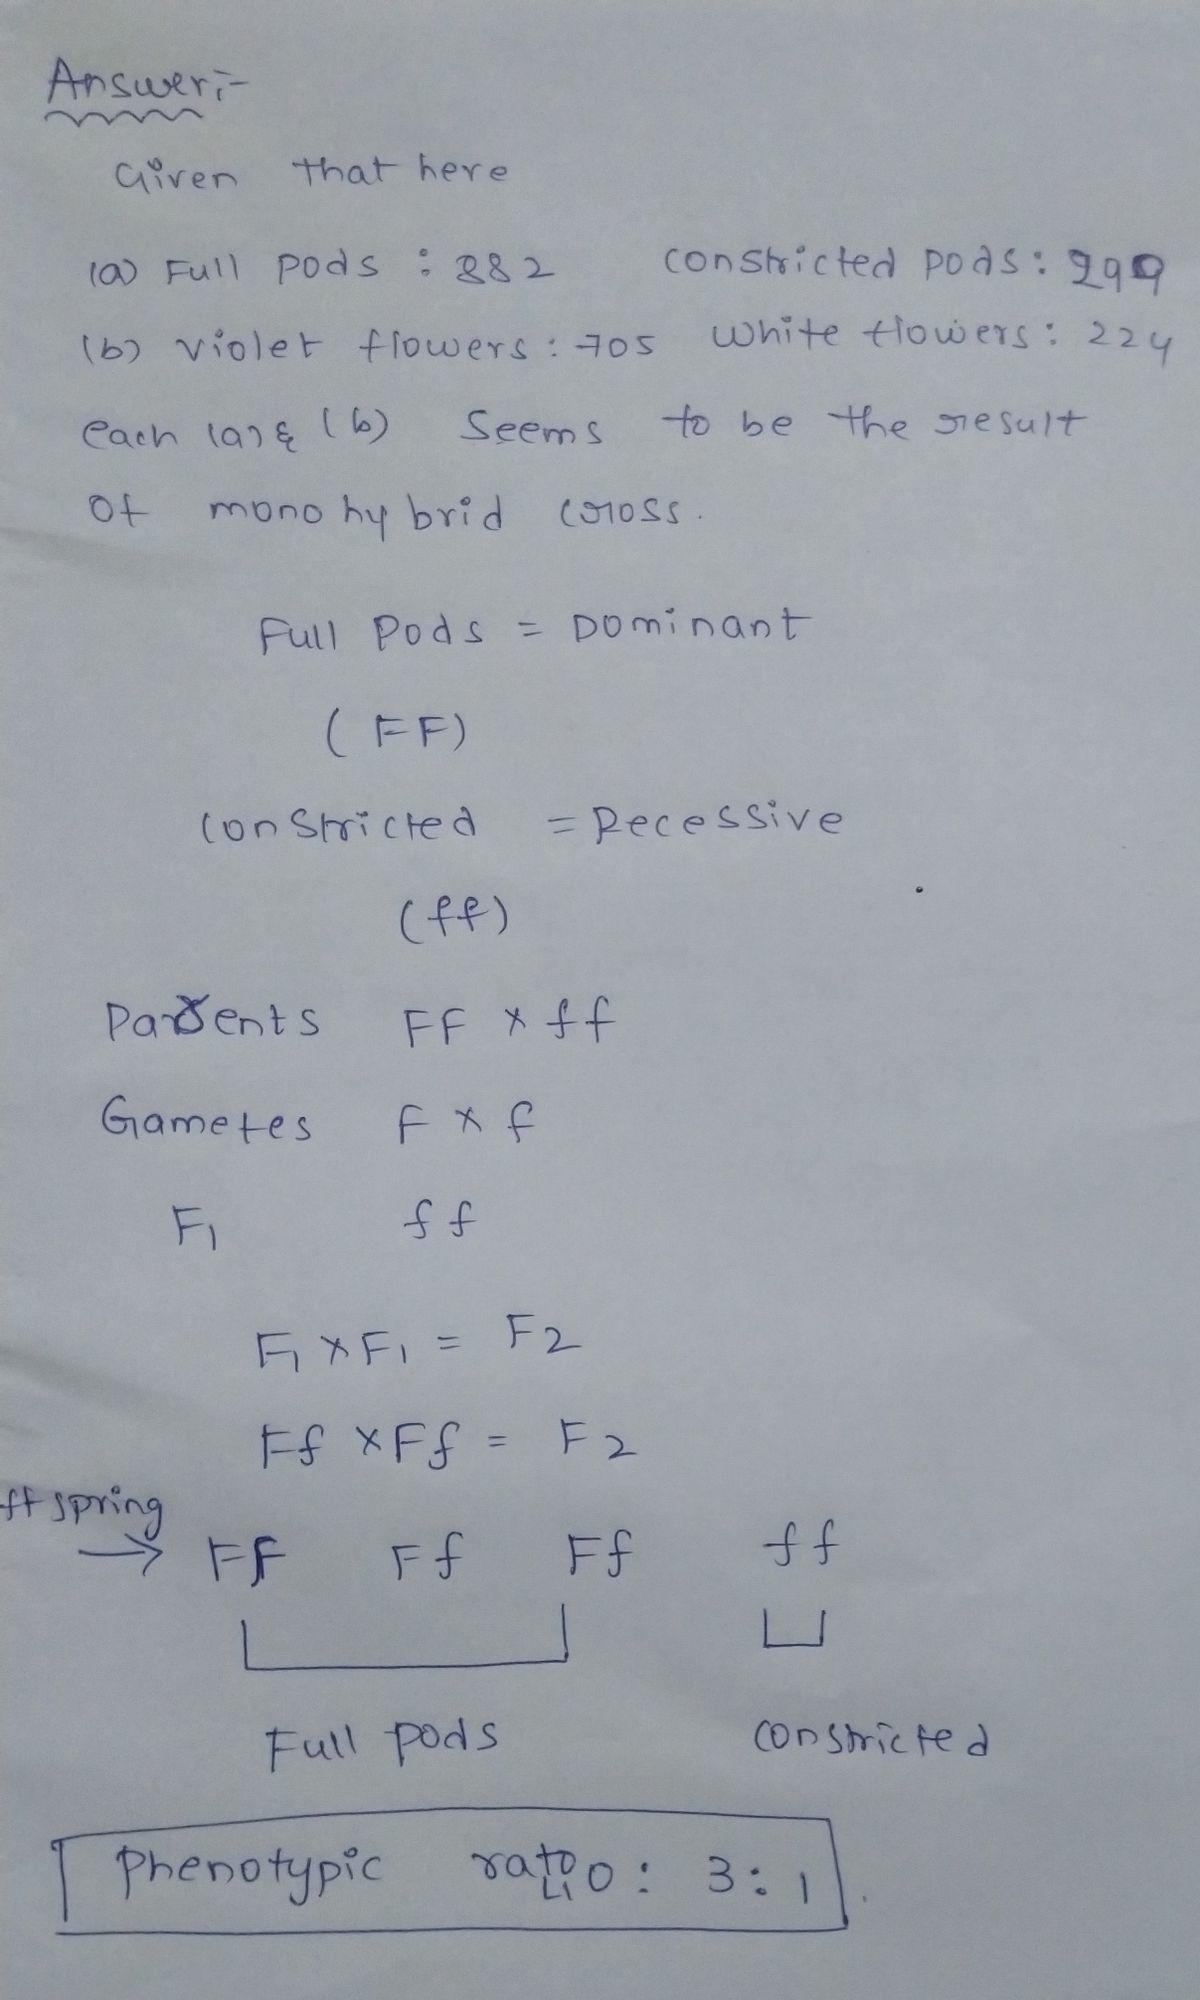 Answer:-
Given that here
(a) Full pods : 882 constricted pods: 299
(b) violet flowers: 705 white flowers: 224
each (a) & (b) seems to be the result
Of mono hybrid cross.
Full Pods = Dominant
(FF)
constricted = Recessive
(ff)
Parents FF x ff
Gametes F x f
F1 ff
F1 x F1 = F2
Ff x Ff = F2
ffspring
→ FF Ff Ff ff
Full pods constricted
Phenotypic ratio: 3:1